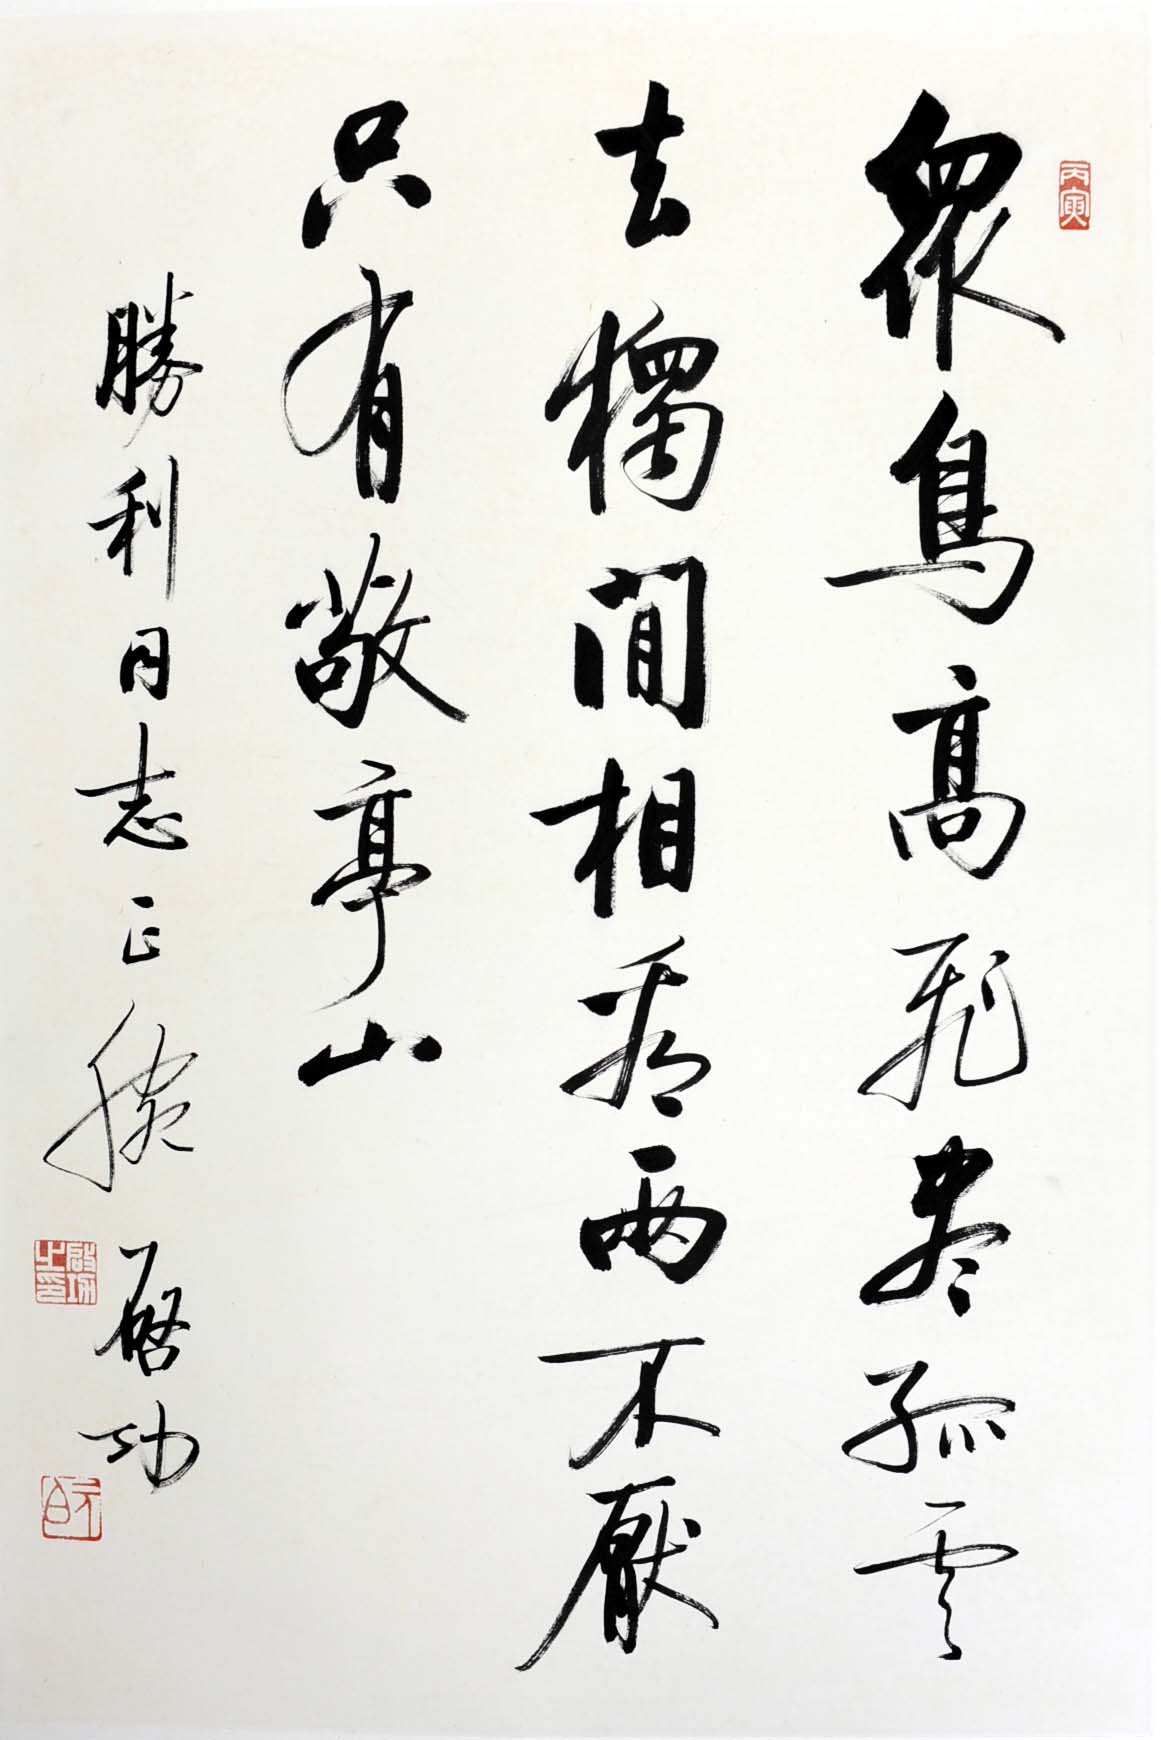 丙寅
眾鳥高飛盡孤雲
去獨閒相看兩不厭
只有敬亭山
勝利同志正腕
啟功
啟功之印